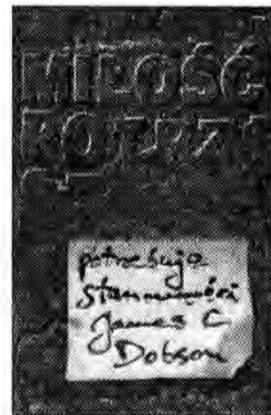 MIŁOŚĆ
potrzebuje
stanowczości
James C
Dobson